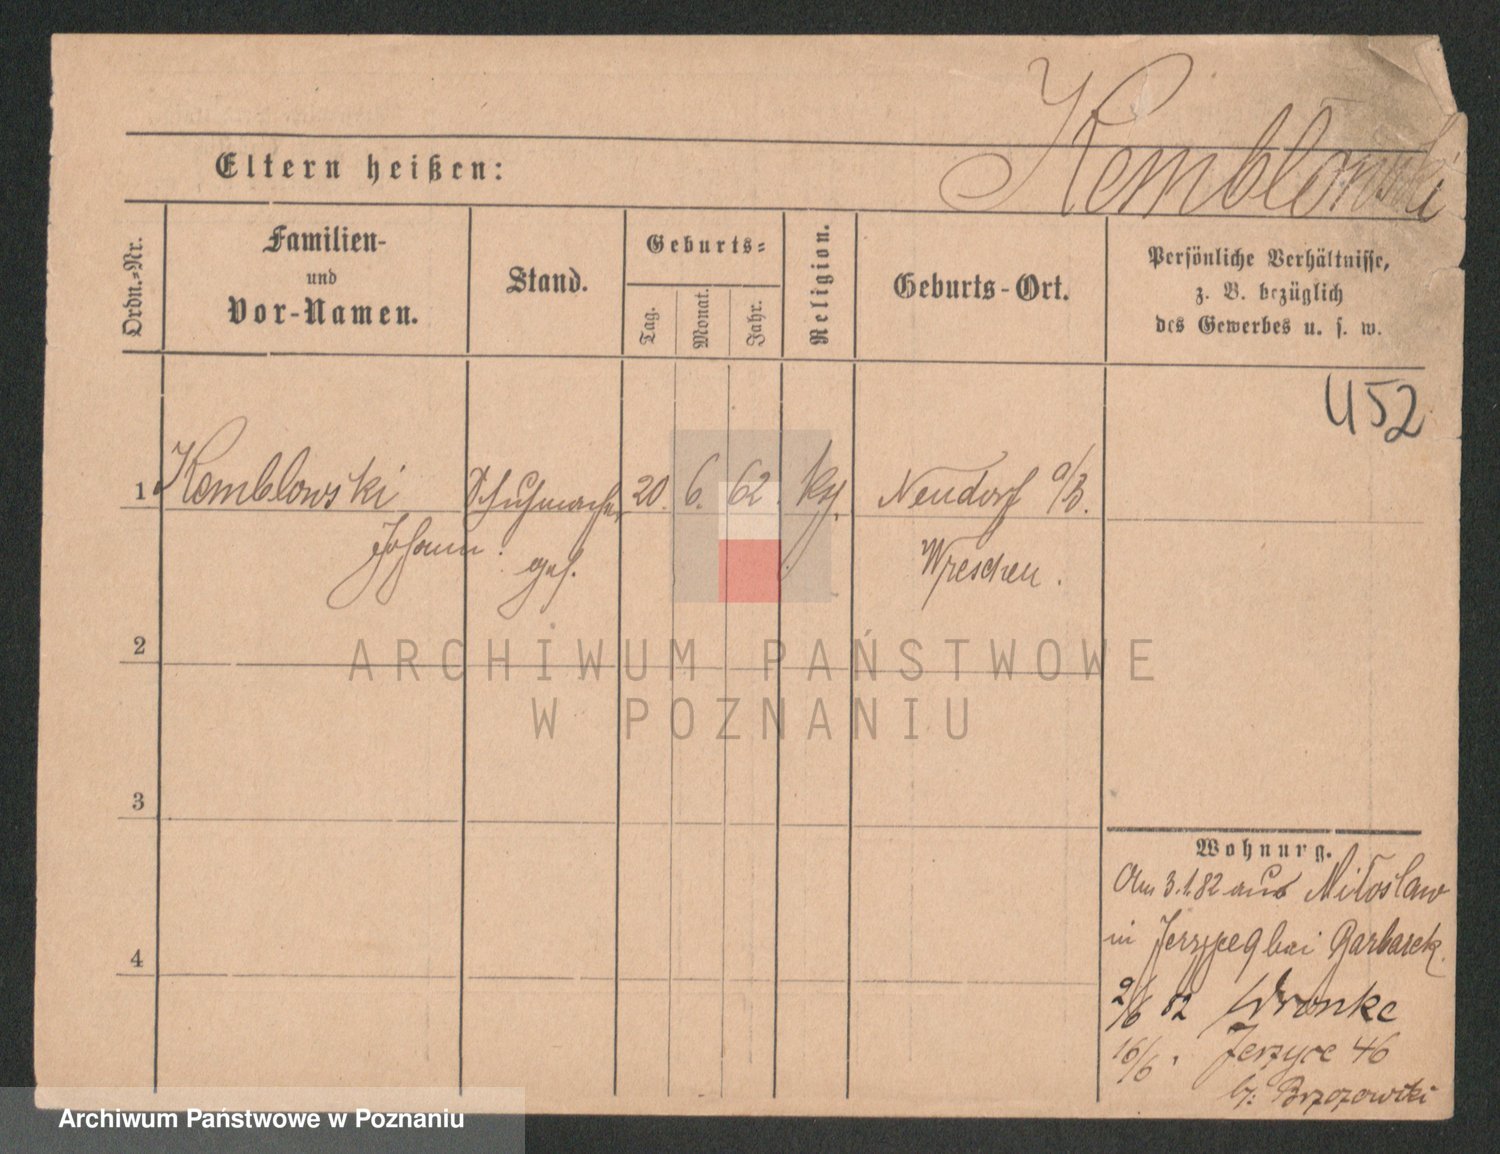 Kemblowski
Eltern heißen:
Ordn.-Nr.
Familien-
und
Vor-Namen.
Stand.
Geburts-
Tag.
Monat.
Jahr.
Religion.
Geburts-Ort.
Persönliche Verhältnisse,
z. B. bezüglich
des Gewerbes u. s. w.
452
1 Kemblowski Schuhmacher 20. 6. 62. Neudorf a/B.
Johann. ges. Wreschen.
2
3
4
Wohnung.
Am 3.1.82 aus Miloslaw
in bei Garbarek.
9/6 82 Wronke
16/6. Jerzyce 46
b: Brzozowski
ARCHIWUM PAŃSTWOWE
W POZNANIU
Archiwum Państwowe w Poznaniu